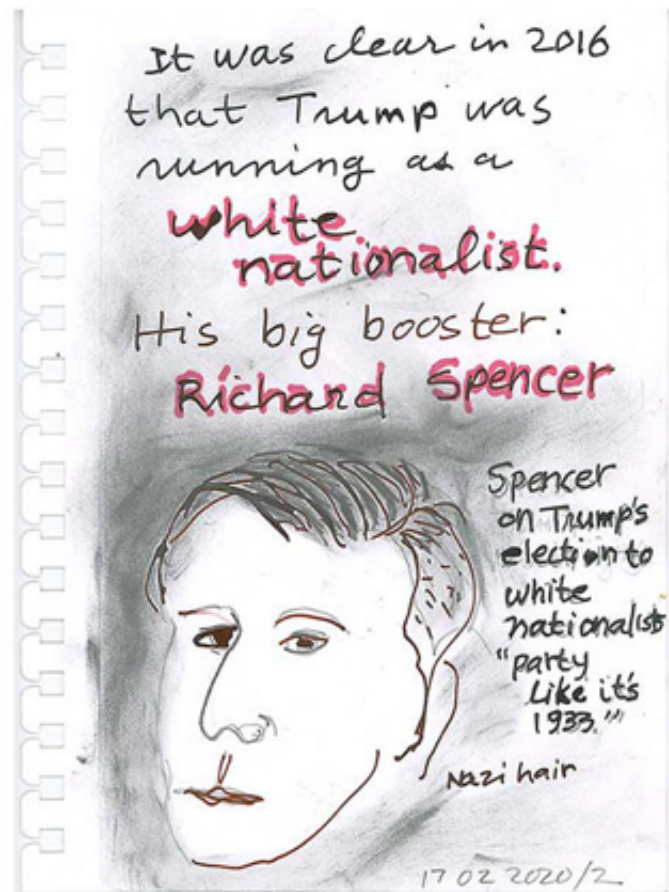 It was clear in 2016
that Trump was
running as a
white
nationalist.
His big booster:
Richard Spencer
Spencer
on Trump's
election to
white
nationalists
"party
Like it's
1933."
Nazi hair
17 02 2020/2